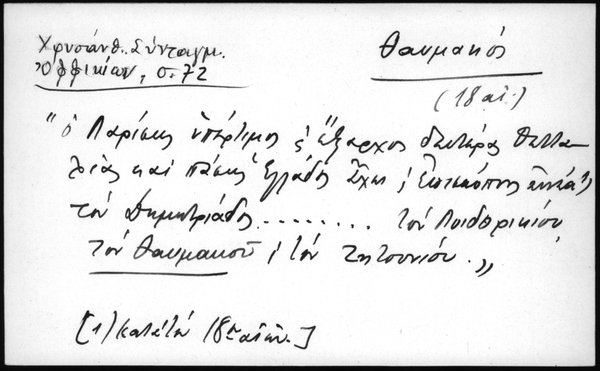 Χρυσάνθ. Σύνταγμ.
Ὀφφικίων, σ. 72
Θαυμακός
(18 αἰ.)
"ὁ Λαρίσης ὑπέρτιμος ἔξαρχος δευτέρας Θεττα-
λίας καὶ πάσης Ἑλλάδος ἔχει ἐπισκόπους ἐννέα 1)
τὸν Δημητριάδος ........ τὸν Λιδορικίου
τὸν Θαυμακοῦ, τὸν Ζητουνίου."
[1) κατὰ τὸν 18ον αἰῶν.]